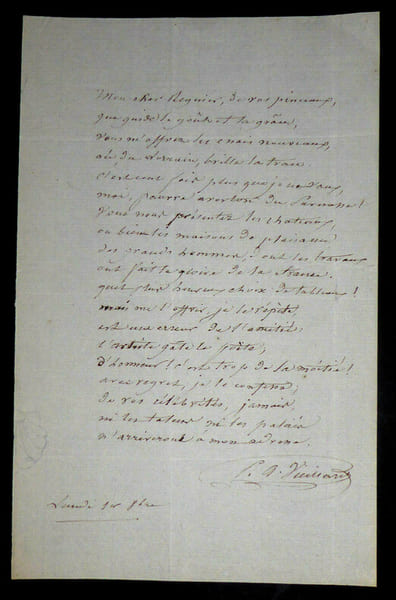 Mon cher Regnier, de vos pinceaux,
que guide le goût et la grâce,
vous m'offrez les essais nouveaux,
où du Lorrain, brille la trace.
c'est cent fois plus que je ne vaux,
moi, pauvre avorton du Parnasse!
Vous nous présentez les châteaux,
ou bien les maisons de plaisance
des grands hommes, dont les travaux
ont fait la gloire de la France.
quel plus heureux choix de tableaux!
mais me l'offrir, je le répète,
est une erreur de l'amitié:
l'artiste gâte le poète;
d'honneur! c'est trop de la moitié!
avec regret, je le confesse,
de vos célébrités, jamais
ni les talens ni les palais
n'arriveront à mon adresse.
P. A. Vieillard
Lundi 1er 8bre